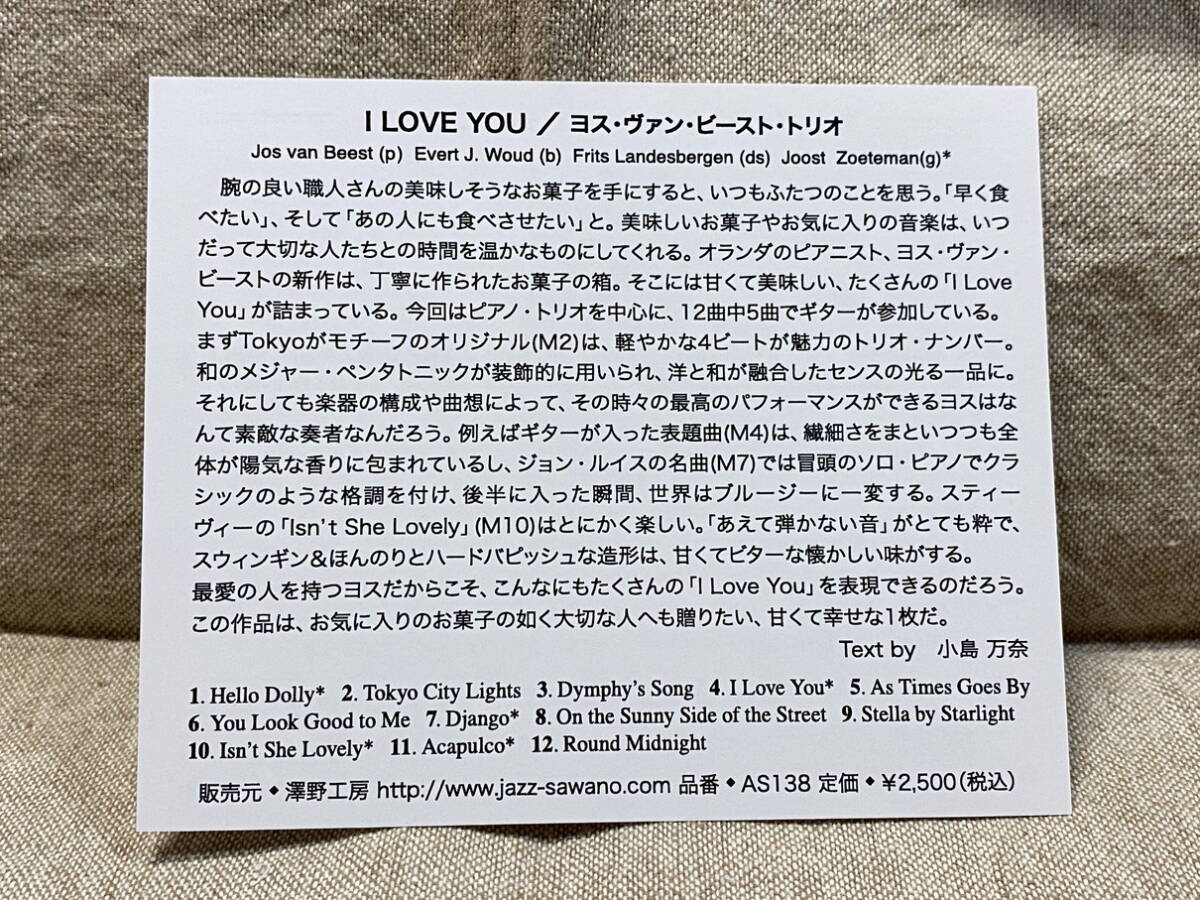 I LOVE YOU / ヨス・ヴァン・ビースト・トリオ
Jos van Beest (p) Evert J. Woud (b) Frits Landesbergen (ds) Joost Zoeteman(g)*
腕の良い職人さんの美味しそうなお菓子を手にすると、いつもふたつのことを思う。「早く食
べたい」、そして「あの人にも食べさせたい」と。美味しいお菓子やお気に入りの音楽は、いつ
だって大切な人たちとの時間を温かなものにしてくれる。オランダのピアニスト、ヨス・ヴァン・
ビーストの新作は、丁寧に作られたお菓子の箱。そこには甘くて美味しい、たくさんの「I Love
You」が詰まっている。今回はピアノ・トリオを中心に、12曲中5曲でギターが参加している。
まずTokyoがモチーフのオリジナル(M2)は、軽やかな4ビートが魅力のトリオ・ナンバー。
和のメジャー・ペンタトニックが装飾的に用いられ、洋と和が融合したセンスの光る一品に。
それにしても楽器の構成や曲想によって、その時々の最高のパフォーマンスができるヨスはな
んて素敵な奏者なんだろう。例えばギターが入った表題曲(M4)は、繊細さをまといつつも全
体が陽気な香りに包まれているし、ジョン・ルイスの名曲(M7)では冒頭のソロ・ピアノでクラ
シックのような格調を付け、後半に入った瞬間、世界はブルージーに一変する。スティー
ヴィーの「Isn't She Lovely」(M10)はとにかく楽しい。「あえて弾かない音」がとても粋で、
スウィンギン&ほんのりとハードバピッシュな造形は、甘くてビターな懐かしい味がする。
最愛の人を持つヨスだからこそ、こんなにもたくさんの「I Love You」を表現できるのだろう。
この作品は、お気に入りのお菓子の如く大切な人へも贈りたい、甘くて幸せな1枚だ。
Text by 小島 万奈
1. Hello Dolly* 2. Tokyo City Lights 3. Dymphy's Song 4. I Love You* 5. As Times Goes By
6. You Look Good to Me 7. Django* 8. On the Sunny Side of the Street 9. Stella by Starlight
10. Isn't She Lovely* 11. Acapulco* 12. Round Midnight
販売元◆澤野工房 http://www.jazz-sawano.com 品番◆AS138 定価◆¥2,500(税込)